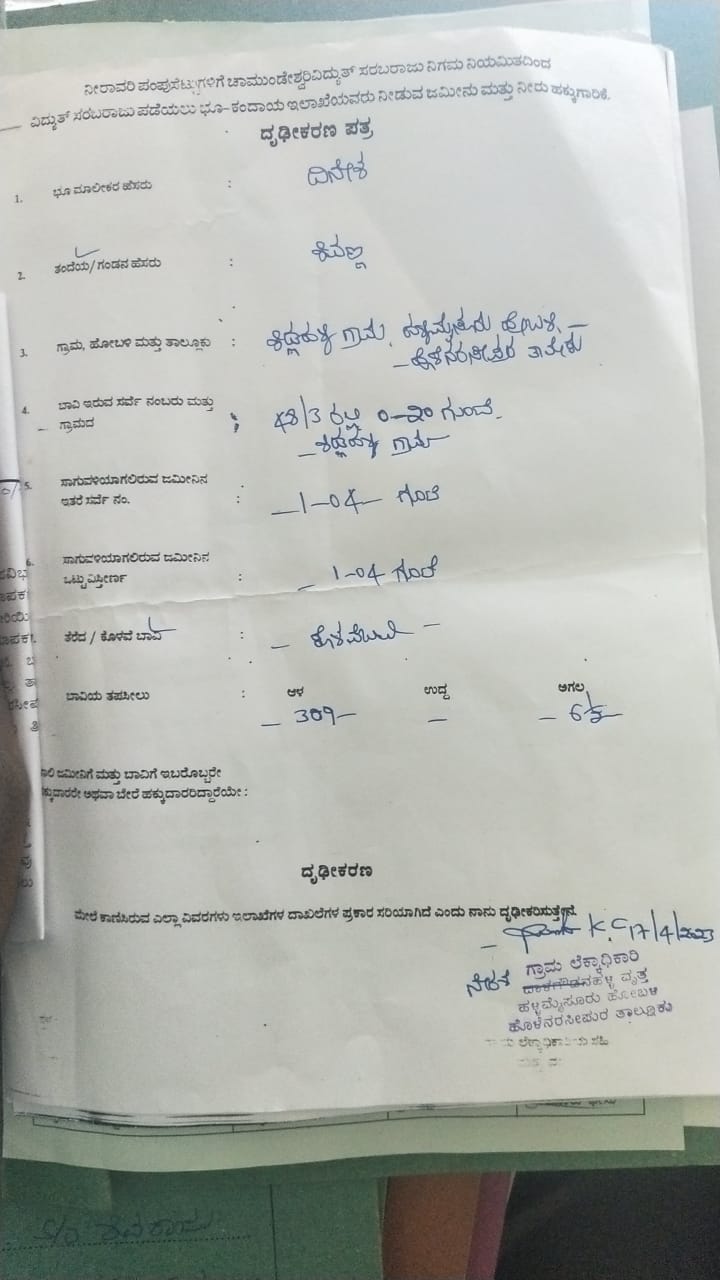 ನೀರಾವರಿ ಪಂಪುಸೆಟ್ಟುಗಳಿಗೆ ಚಾಮುಂಡೇಶ್ವರಿವಿದ್ಯುತ್ ಸರಬರಾಜು ನಿಗಮ ನಿಯಮಿತದಿಂದ
ವಿದ್ಯುತ್ ಸರಬರಾಜು ಪಡೆಯಲು ಭೂ-ಕಂದಾಯ ಇಲಾಖೆಯವರು ನೀಡುವ ಜಮೀನು ಮತ್ತು ನೀರು ಹಕ್ಕುಗಾರಿಕೆ.
ದೃಢೀಕರಣ ಪತ್ರ
1. ಭೂ ಮಾಲೀಕರ ಹೆಸರು : ದಿನೇಶ
2. ತಂದೆಯ/ಗಂಡನ ಹೆಸರು : ಶಿವಣ್ಣ
3. ಗ್ರಾಮ, ಹೋಬಳಿ ಮತ್ತು ತಾಲ್ಲೂಕು : ಗ್ರಾಮ,
4. ಬಾವಿ ಇರುವ ಸರ್ವೆ ನಂಬರು ಮತ್ತು
ಗ್ರಾಮದ : 48/3 ರಲ್ಲಿ 0-20 ಗುಂಟೆ
ಗ್ರಾಮ
5. ಸಾಗುವಳಿಯಾಗಲಿರುವ ಜಮೀನಿನ
ಇತರೆ ಸರ್ವೆ ನಂ. : 1-04 ಗುಂಟೆ
6. ಸಾಗುವಳಿಯಾಗಲಿರುವ ಜಮೀನಿನ
ಒಟ್ಟು ವಿಸ್ತೀರ್ಣ : 1-04 ಗುಂಟೆ
ತೆರೆದ / ಕೊಳವೆ ಬಾವಿ : - ಕೊಳವೆಬಾವಿ -
ಬಾವಿಯ ತಪಸೀಲು : ಆಳ ಉದ್ದ ಅಗಲ
- 309 - - - 6½ -
ಜಮೀನಿಗೆ ಮತ್ತು ಬಾವಿಗೆ ಇಬರೊಬ್ಬರೇ
ಹಕ್ಕುದಾರರೇ ಅಥವಾ ಬೇರೆ ಹಕ್ಕುದಾರರಿದ್ದಾರೆಯೇ :
ದೃಢೀಕರಣ
ಮೇಲೆ ಕಾಣಿಸಿರುವ ಎಲ್ಲಾ ವಿವರಗಳು ಇಲಾಖೆಗಳ ದಾಖಲೆಗಳ ಪ್ರಕಾರ ಸರಿಯಾಗಿದೆ ಎಂದು ನಾನು ದೃಢೀಕರಿಸುತ್ತೇನೆ
K.C 17/4/2023
ಗ್ರಾಮ ಲೆಕ್ಕಾಧಿಕಾರಿ
ವೃತ್ತ
ಹಳ್ಳಿಮೈಸೂರು ಹೋಬಳಿ
ಹೊಳೆನರಸೀಪುರ ತಾಲ್ಲೂಕು